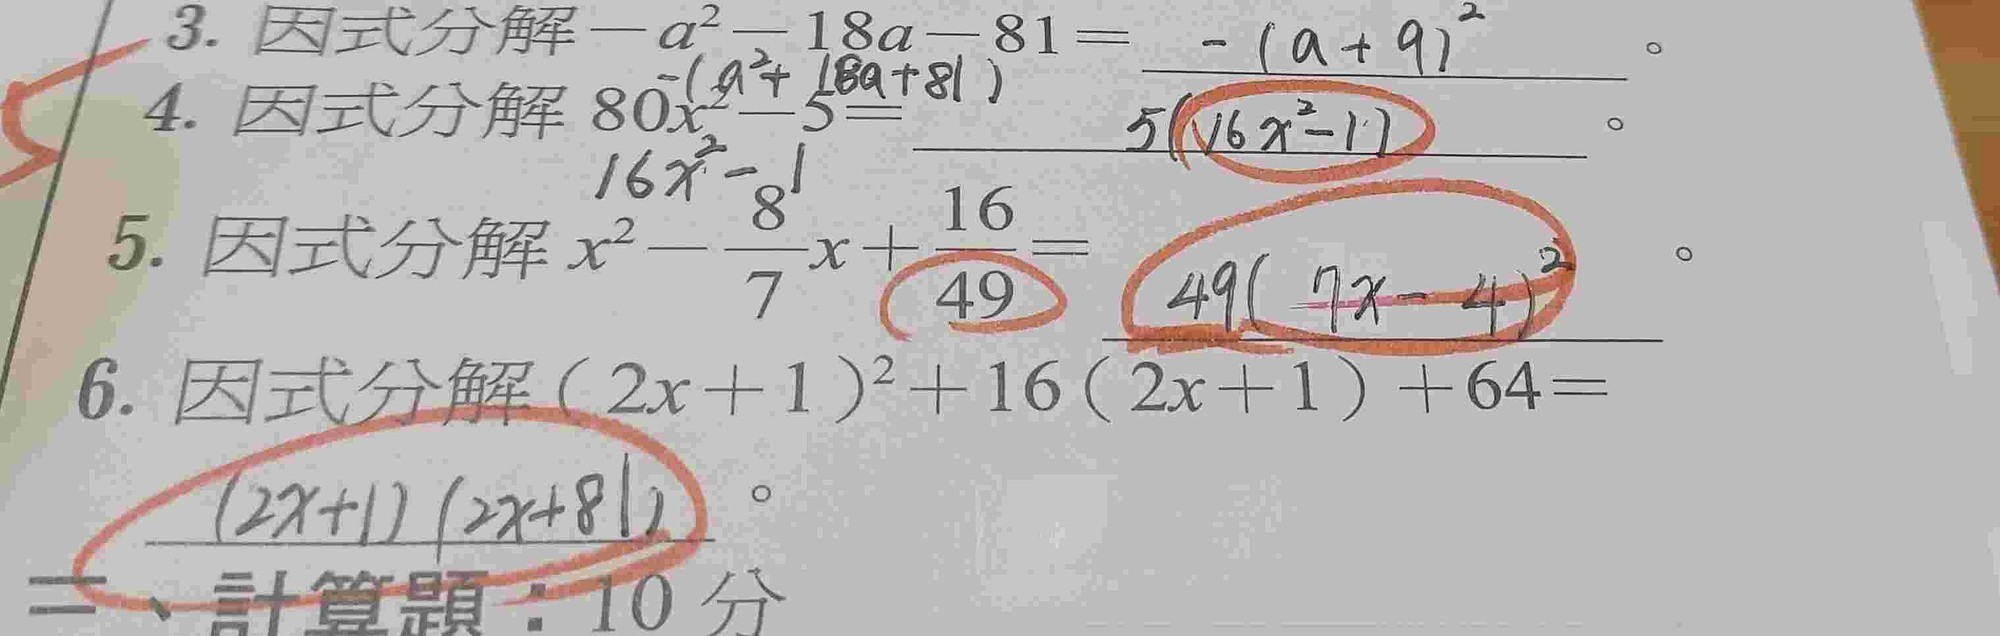 3. 因式分解 −a² − 18a − 81 = −(a+9)² 。
−(a²+18a+81)
4. 因式分解 80x² − 5 = 5(16x²−1) 。
16x²−1
5. 因式分解 x² − 8/7 x + 16/49 = 49(7x−4)² 。
6. 因式分解（2x+1）²+16（2x+1）+64=
(2x+1)(2x+81) 。
二、計算題：10 分